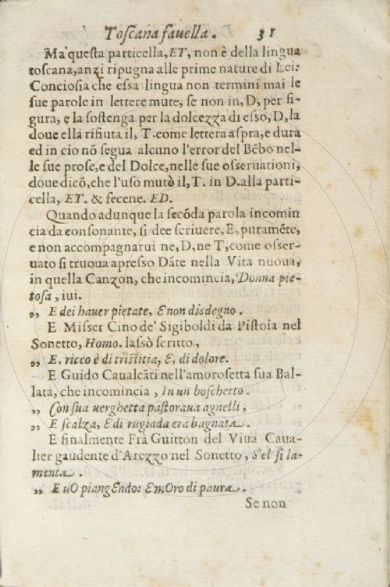 Toscana favella. 31
Ma questa particella, ET, non è della lingua
toscana, anzi ripugna alle prime nature di Lei:
Conciosia che essa lingua non termini mai le
sue parole in lettere mute, se non in, D, per fi-
gura, e la sostenga per la dolcezza di esso, D, la
doue ella rifiuta il, T. come lettera aspra, e dura
ed in cio nō segua alcuno l'error del Bēbo nel-
le sue prose, e del Dolce, nelle sue osseruationi,
doue dicō, che l'uso mutò il, T. in D. alla parti-
cella, ET. & fecene. ED.
Quando adunque la secōda parola incomin
cia da consonante, si dee scriuere, E, puramēte,
e non accompagnarui ne, D, ne T, come osser-
uato si truoua apresso Dāte nella Vita nuoua,
in quella Canzon, che incomincia, Donna pie-
tosa, iui.
„ E dei hauer pietate, E non disdegno.
E Misser Cino de' Sigiboldi da Pistoia nel
Sonetto, Homo. lassò scritto,
„ E, ricco è di tristitia, E, di dolore.
E Guido Caualcāti nell'amorosetta sua Bal-
lata, che incomincia, In un boschetto.
„ Con sua uerghetta pastoraua agnelli,
„ E scalza, E di rugiada era bagnata.
E finalmente Frà Guitton del Viua Caua-
lier gaudente d'Arezzo nel Sonetto, S'el si la-
menta.
„ E uO piangEndo: E mOro di paura.
Se non